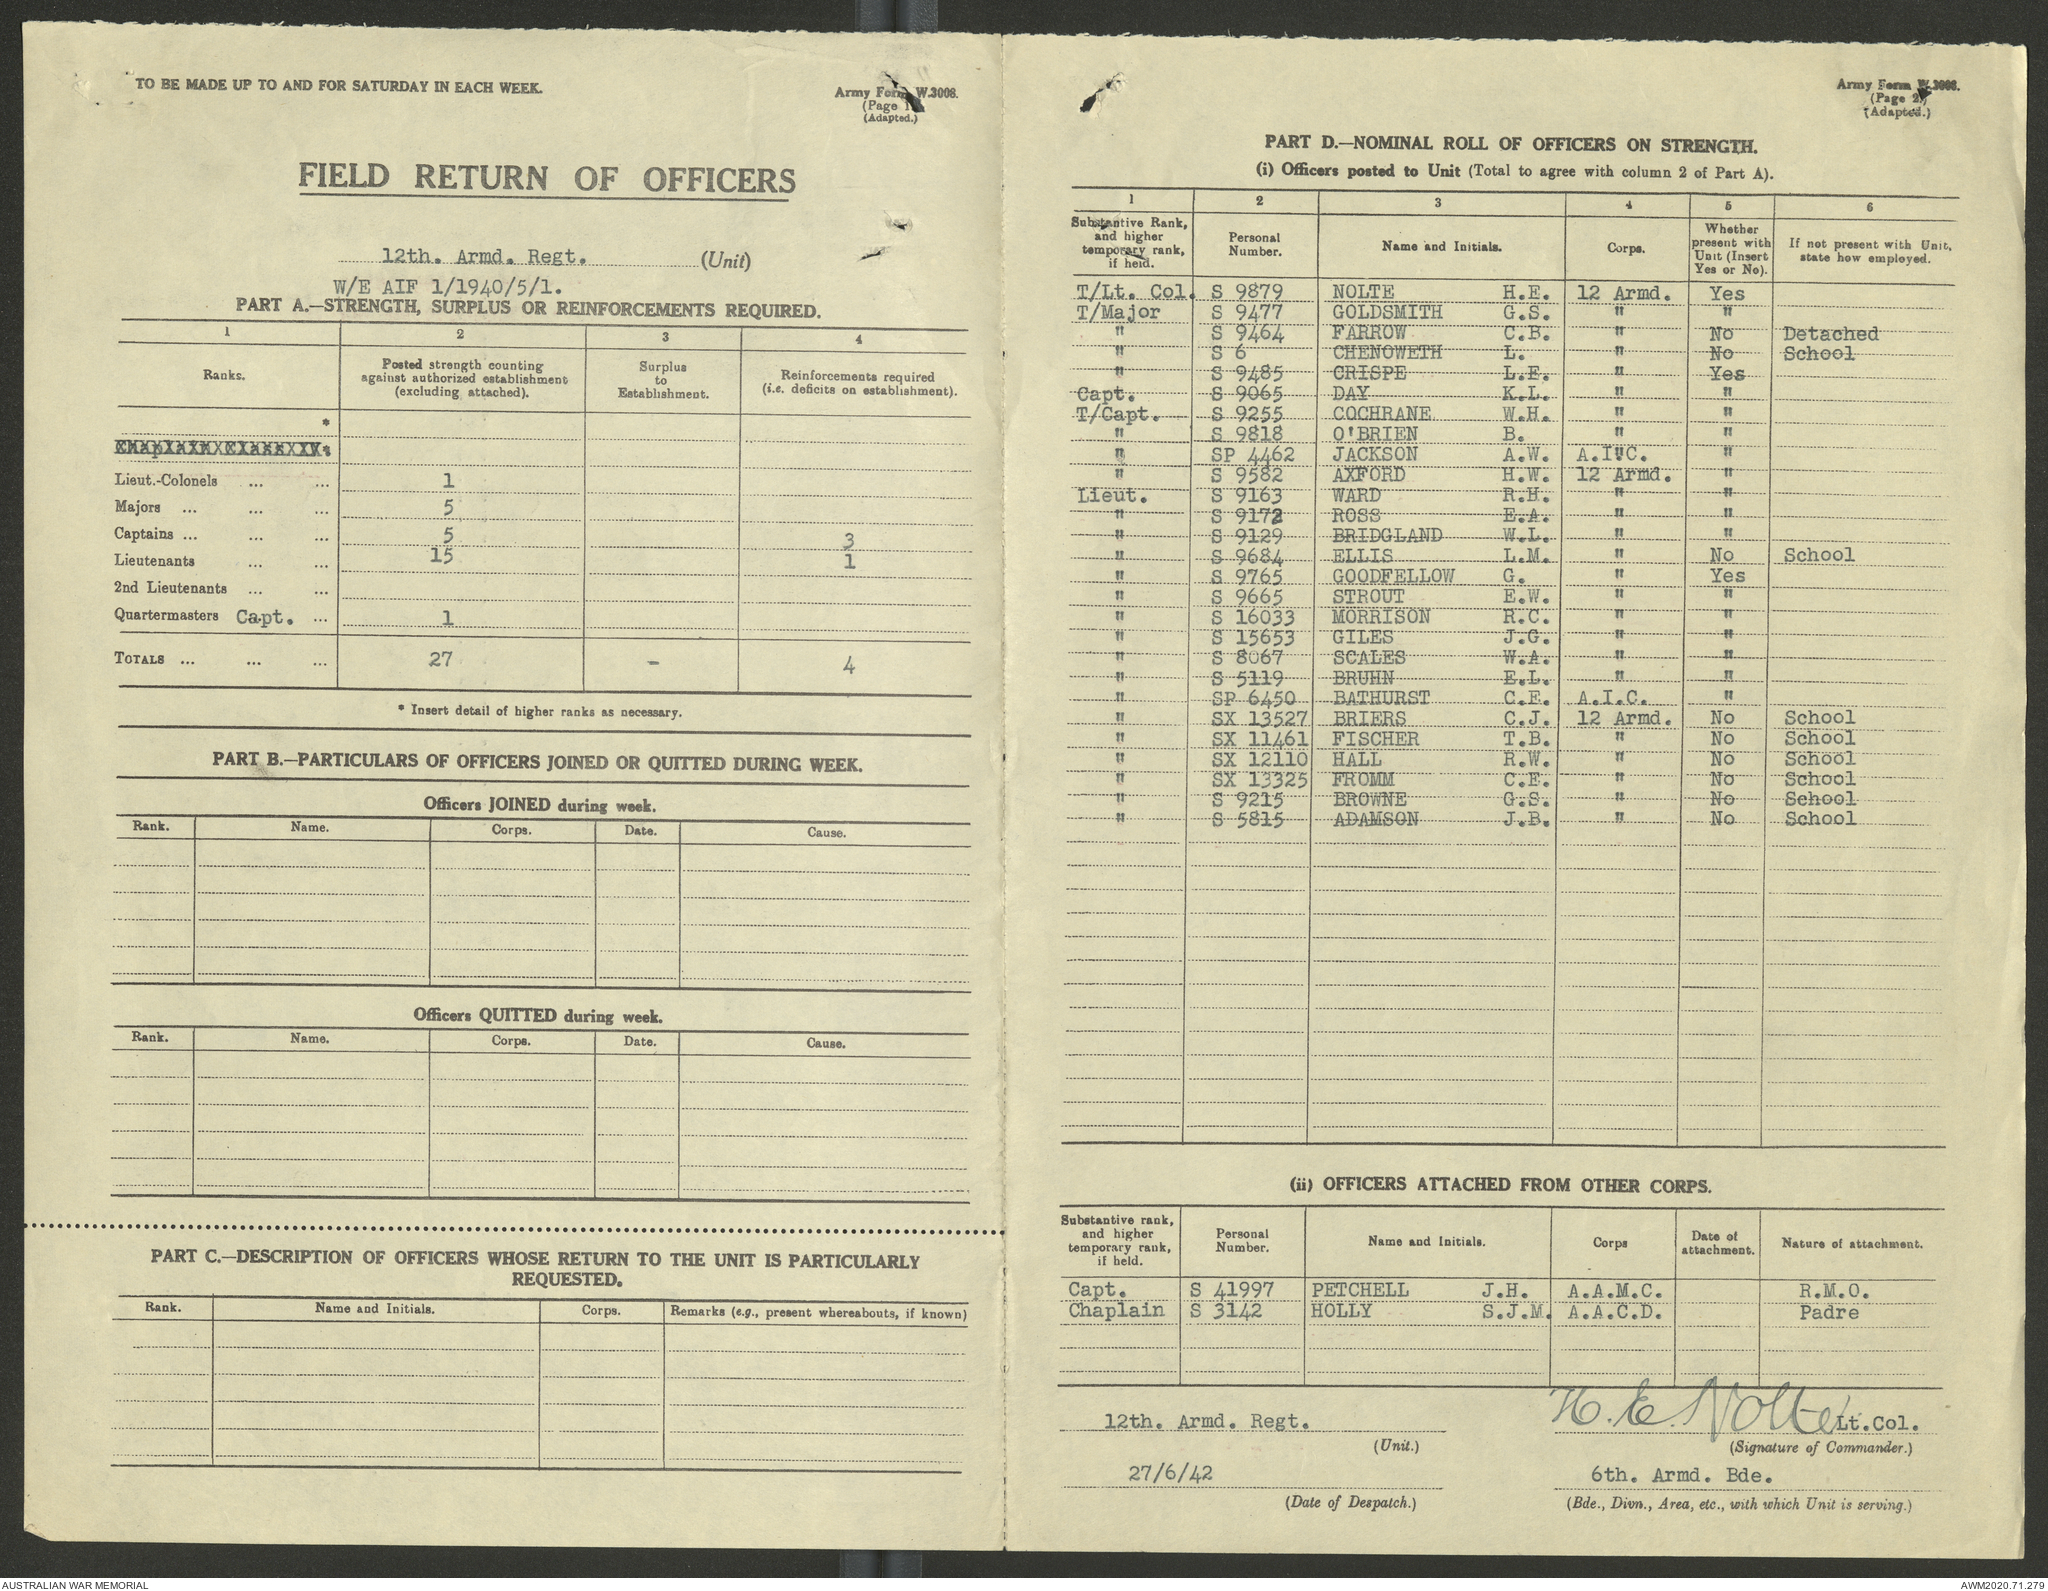 TO BE MADE UP TO AND FOR SATURDAY IN EACH WEEK.
Army Form W.3008.
(Page 1.)
(Adapted.)
FIELD RETURN OF OFFICERS
12th. Armd. Regt. (Unit)
W/E AIF 1/1940/5/1.
PART A.—STRENGTH, SURPLUS OR REINFORCEMENTS REQUIRED.
1 2 3 4
Ranks. Posted strength counting against authorized establishment (excluding attached). Surplus to Establishment. Reinforcements required (i.e. deficits on establishment).
*
Chaplain Class IV*
Lieut.-Colonels ... ... 1
Majors ... ... ... 5
Captains ... ... ... 5 3
Lieutenants ... ... 15 1
2nd Lieutenants ... ...
Quartermasters Capt. ... 1
TOTALS ... ... ... 27 - 4
* Insert detail of higher ranks as necessary.
PART B.—PARTICULARS OF OFFICERS JOINED OR QUITTED DURING WEEK.
Officers JOINED during week.
Rank. Name. Corps. Date. Cause.
Officers QUITTED during week.
Rank. Name. Corps. Date. Cause.
PART C.—DESCRIPTION OF OFFICERS WHOSE RETURN TO THE UNIT IS PARTICULARLY
REQUESTED.
Rank. Name and Initials. Corps. Remarks (e.g., present whereabouts, if known)
Army Form W.3008.
(Page 2.)
(Adapted.)
PART D.—NOMINAL ROLL OF OFFICERS ON STRENGTH.
(i) Officers posted to Unit (Total to agree with column 2 of Part A).
1 2 3 4 5 6
Substantive Rank, and higher temporary rank, if held. Personal Number. Name and Initials. Corps. Whether present with Unit (Insert Yes or No). If not present with Unit, state how employed.
T/Lt. Col. S 9879 NOLTE H.E. 12 Armd. Yes
T/Major S 9477 GOLDSMITH G.S. " "
" S 9464 FARROW C.B. " No Detached
" S 6 CHENOWETH L. " No School
" S 9485 CRISPE L.E. " Yes
Capt. S 9065 DAY K.L. " "
T/Capt. S 9255 COCHRANE W.H. " "
" S 9818 O'BRIEN B. " "
" SP 4462 JACKSON A.W. A.I.C. "
" S 9582 AXFORD H.W. 12 Armd. "
Lieut. S 9163 WARD R.H. " "
" S 9172 ROSS E.A. " "
" S 9129 BRIDGLAND W.L. " "
" S 9684 ELLIS L.M. " No School
" S 9765 GOODFELLOW G. " Yes
" S 9665 STROUT E.W. " "
" S 16033 MORRISON R.C. " "
" S 15653 GILES J.G. " "
" S 8067 SCALES W.A. " "
" S 5119 BRUHN E.L. " "
" SP 6450 BATHURST C.E. A.I.C. "
" SX 13527 BRIERS C.J. 12 Armd. No School
" SX 11461 FISCHER T.B. " No School
" SX 12110 HALL R.W. " No School
" SX 13325 FROMM C.E. " No School
" S 9215 BROWNE G.S. " No School
" S 5815 ADAMSON J.B. " No School
(ii) OFFICERS ATTACHED FROM OTHER CORPS.
Substantive rank, and higher temporary rank, if held. Personal Number. Name and Initials. Corps Date of attachment. Nature of attachment.
Capt. S 41997 PETCHELL J.H. A.A.M.C. R.M.O.
Chaplain S 3142 HOLLY S.J.M. A.A.C.D. Padre
12th. Armd. Regt. H. E. Nolte Lt.Col.
(Unit.) (Signature of Commander.)
27/6/42 6th. Armd. Bde.
(Date of Despatch.) (Bde., Divn., Area, etc., with which Unit is serving.)
AUSTRALIAN WAR MEMORIAL AWM2020.71.279